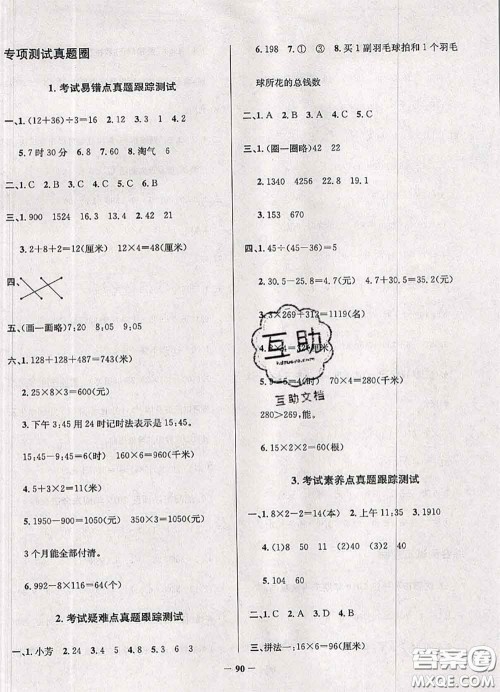 专项测试真题圈
1. 考试易错点真题跟踪测试
一、1. (12+36)÷3=16 2. 34 3. 1 4. 2
5. 7时30分 6. 8 7. 淘气 6
二、1. C 2. B 3. B 4. C 5. A
三、1. 900 1524 16. 3 13. 4 2. 444
3. 2+8+2=12(厘米) 12×4=48(厘米)
四、
五、(画一画略)7:20 8:05 9:05
六、1. 128+128+487=743(米)
2. 25×8×3=600(元)
3. 下午3:45用24时记时法表示是15:45。
15:45-9:45=6(时) 160×6=960(千米)
4. 5+3+2+1=11(米)
5. 1950-900=1050(元) 350×3=1050(元)
3个月能全部付清。
6. 992-8×116=64(个)
2. 考试疑难点真题跟踪测试
一、1. 小芳 2. 24 3. 47 4. 8 5. 3 6
6. 198 7. ① ③ 8. 买1副羽毛球拍和1个羽毛
球所花的总钱数
二、1. A 2. A 3. C 4. B 5. C 6. B
三、1. (圈一圈略)42 22
2. 1340 4256 15. 8 10. 8
3. 153 670
四、1. 45÷(45-36)=5
2. 30. 5-25. 8=4. 7(元) 4. 7+30. 5=35. 2(元)
3. 3×269+312=1119(名)
5. 9-5=4(时) 70×4=280(千米)
280>269,能。
6. 15×2×2=60(根)
3. 考试素养点真题跟踪测试
一、1. 8×2-2=14(本) 2. 上午11:35 3. 1910
4. (1)8 50 11 (2)38 40 5. 5
6. 1250 250
二、1. D 2. A 3. A 4. B 5. C
三、拼法一:16×6=96(厘米)
互助
互助文档
— 90 —
答案圈
MXQE.COM